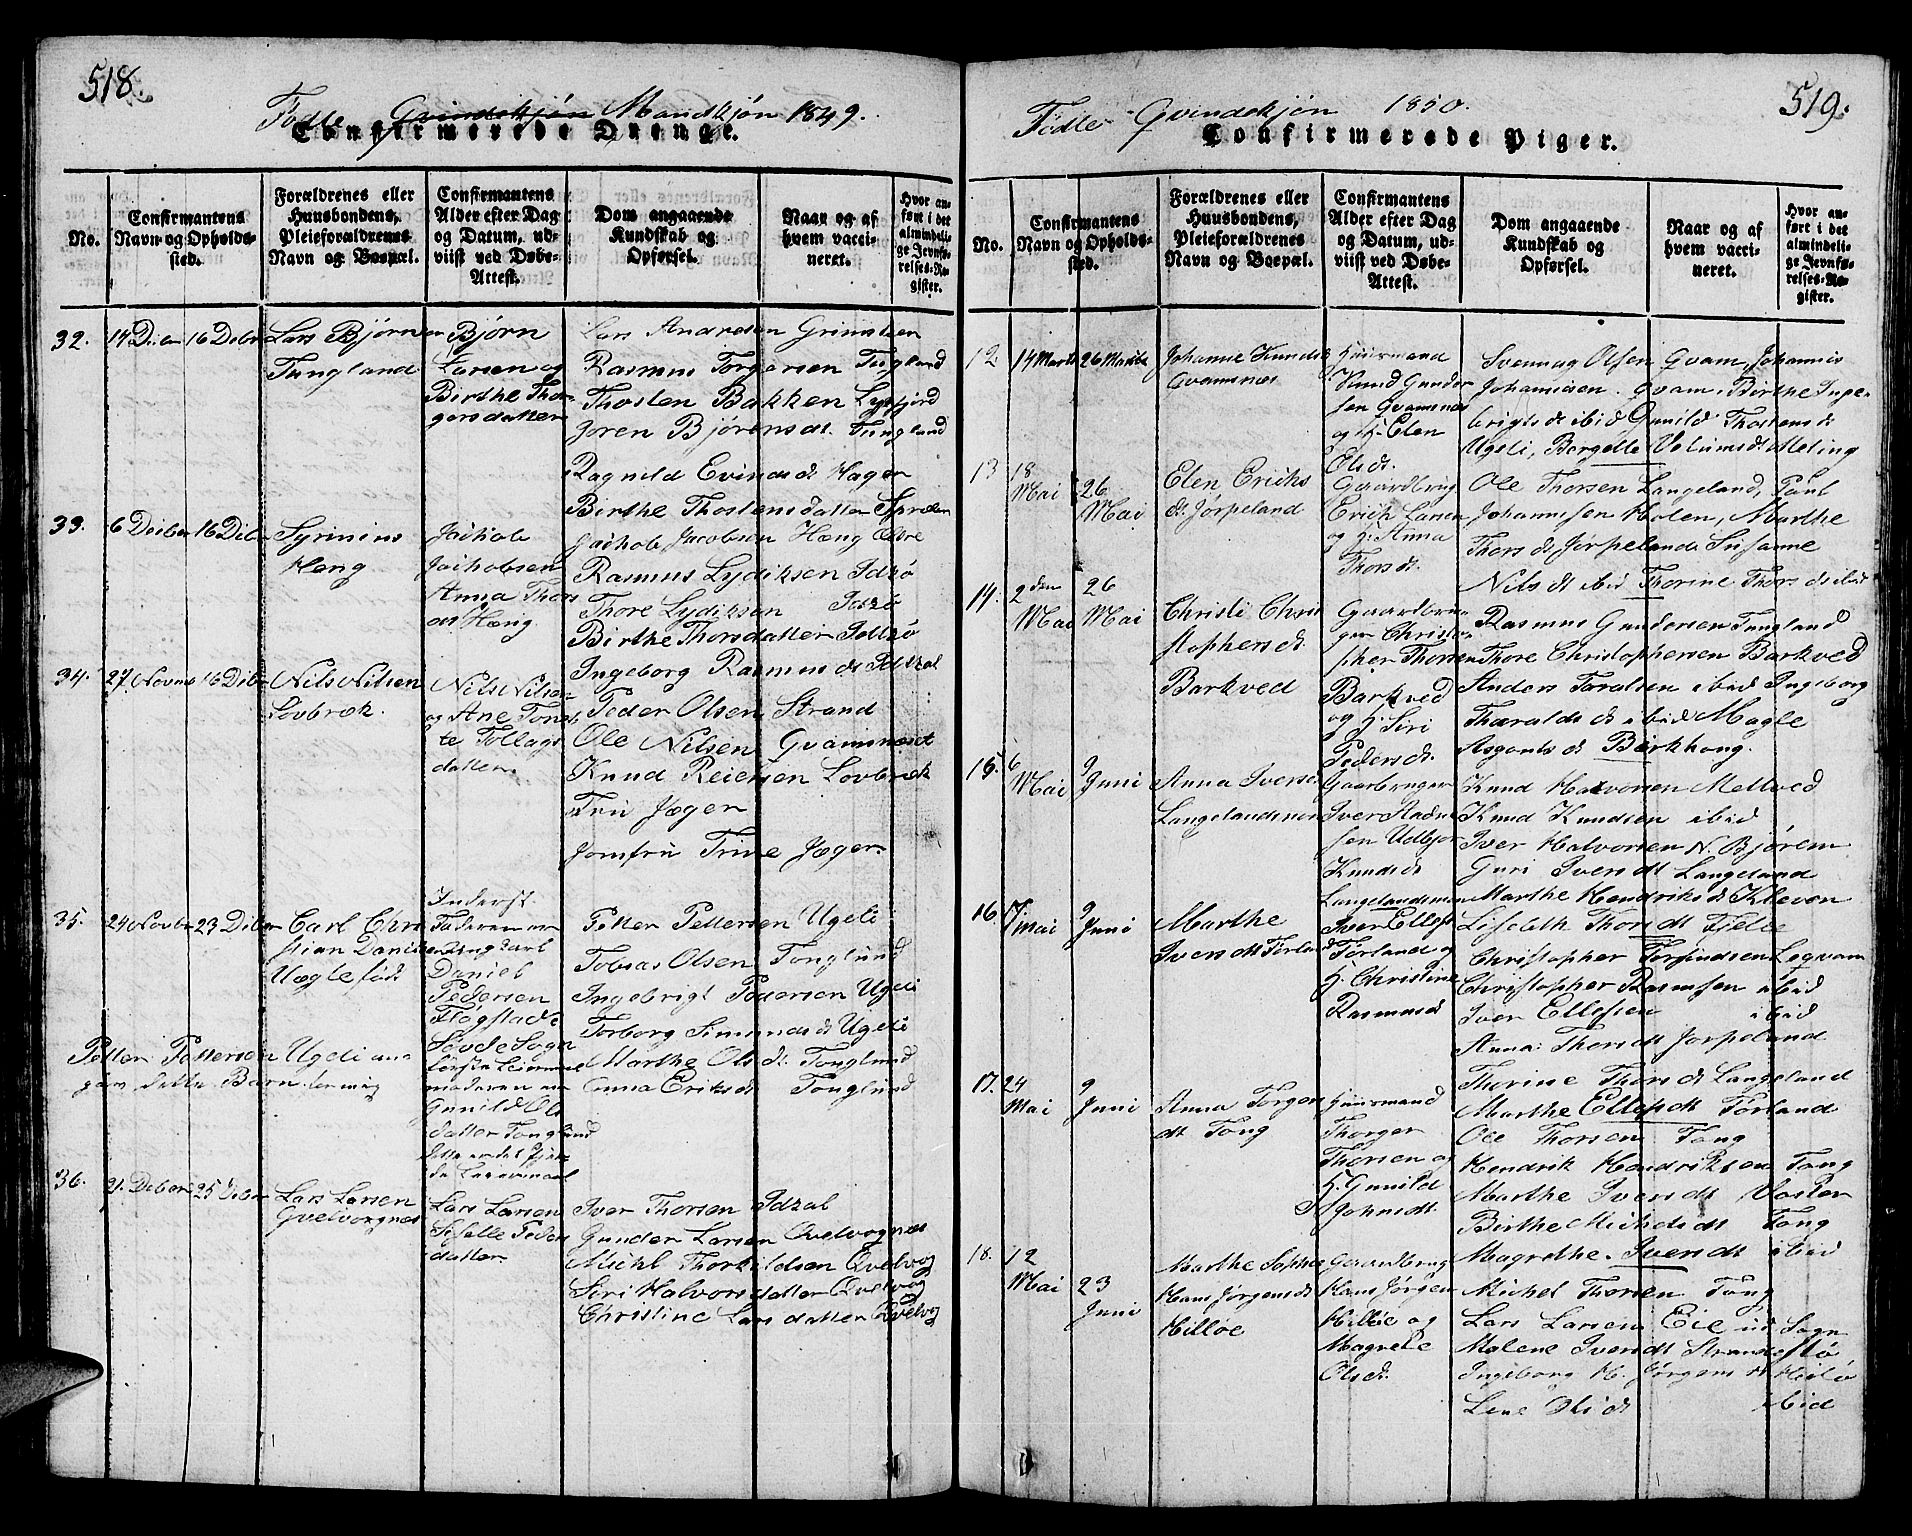 518.
Födte Qvindekjön Mandkjön 1849.
Confirmerede Drenge.
No.
Confirmantens Navn og Opholdssted.
Forældrenes eller Huusbondens, Pleieforældrenes Navn og Boepæl.
Confirmantens Alder efter Dag og Datum, udviist ved Døbe-Attest.
Dom angaaende Kundskab og Opførsel.
Naar og af hvem vaccineret.
Hvor anført i det almindelige Jevnførelses-Register.
32. 14 Dcibr 16 Debr Lars Bjørnsen
Tungland
Bjørn
Larsen og
Birthe Thor
gersdatter
Lars Andresen Grimsteen
Rasmus Torgersen Tungland
Thosten Bakken Lysefjord
Joren Bjørensdt. Tungland
Ragnild Evindsd Hager
Birthe Thostensdatter
33. 6 Dciber 16 Diber Syrinius
Hæng
Jaihob
Jaihobsen
Anna Thors
dt Hæng.
Jaihob Jacobsen Hæng
Rasmus Lydiksen Idzø
Thore Lydiksen Idzø
Birthe Thorsdatter Idtzø
Ingeborg Rasmusdt Idtzal
34. 27 Novmb 16 Diber Nils Nilsen
Lovbrek.
Nils Nilsen
og Ane Tons
te Tollags
datter.
Peder Olsen Strand
Ole Nilsen Gvamsnæset
Knud Reiersen Lovbræk
Fru Jæger
Jomfru Trine Jæger.
35. 24 Novbr 23 Diber Carl Chri
stian Daniel
Uægtefödt
Inderst.
Faderen er
Ung Carl
Daniel
Pedersen
Flögstad
Søvde Sogn
første Leiermaal
moderen er
Gunild Ols
datter Tonglund
dette er det
de Leiermaal
Petter Pettersen Ugeli
Tobias Olsen Tonglund
Ingebrigt Pedersen Ugeli
Torborg Simonsdt Ugeli
Marthe Olsdt. Tonglund
Anna Eriksdt Tonglund
Petter Pettersen Ugeli an
gav dette Barn
36. 21. Deber 25 Deber Lars Larsen
Gvelvorgnæs
Lars Larsen
Siselle Peders
datter.
Iver Thorsen Idzal
Gunder Larsen Qvelvognæs
Michl Thorkildsen Qvelvog
Siri Halvorsdatter Qvelvog
Christine Larsdatter Qvelvog
519.
Födte Qvindekjön 1850.
Confirmerede Piger.
No.
Confirmantens Navn og Opholdssted.
Forældrenes eller Huusbondens, Pleieforældrenes Navn og Boepæl.
Confirmantens Alder efter Dag og Datum, udviist ved Døbe-Attest.
Dom angaaende Kundskab og Opførsel.
Naar og af hvem vaccineret.
Hvor anført i det almindelige Jevnførelses-Register.
12. 14 Marts 26 Marts Johanne Knudsd
Gvamsnæs
Huusmand
Knud Gunder
sen Gvamsnæs
og H. Elen
Olsdt.
Svennug Olsen Qvam, Johannis
Johannisen Qvam, Birthe Inge
brigtsdt ibid Gunild Thostensdt
Ugeli, Bergelte Meling
13 18 Mai 26 Mai Elen Ericks
dt. Jørpeland
Gaardbrug
Erich Larsen
og h. Anna
Thorsdt.
Ole Thorsen Langeland, Paul
Johannsen Holen, Marthe
Thorsdt Jørpeland Susanne
Nilsdt ibid Thorine Thorsdt ibid
14. 2den Mai 26 Mai Christi Chris
stophersdt.
Barkved
Gaardbru
ger Christo
pher Thorsen
Barkved
og h. Siri
Pedersdt.
Rasmus Gundersen Tungland
Thore Christophersen Barkved
Anders Taralsen ibid Ingeborg
Tharaldsdt ibid Magle
Asgautsdt Birkhaug.
15. 6 Mai 9 Juni Anna Iversd.
Langelandsneen
Gaarbruger
Iver Aadne
sen Udbjor
Knudsdt
Langelandsneen
Knud Halvorsen Mellved
Knud Knudsen ibid
Iver Halvorsen N. Bjørem
Guri Iversdt Langeland
Marthe Hendriksdt Kleven
16. 7 mai 9 Juni Marthe
Iversdt Førland
Iver Ellefs.
Førland og
h. Christine
Rasmusdt
Lisebeth Thorsdt Fjelde
Christopher Torfindsen Leqvam
Christopher Rasmusen ibid
Iver Ellefsen ibid
Anna Thorsdt Jorpeland
17. 24 Mai 9 Juni Anna Torgers
dt Tong
Huusmand
Thorger
Thorsen og
h. Gunild
Johnsdt.
Thorine Thorsdt Langeland
Marthe Ellefsdt Førland
Ole Thorsen Tong
Hendrik Hendriksen Tong
Marthe Iversdt
Birthe Michelsdt Tong
18. 12 Mai 23 Juni Marthe Sophie
Hans Jørgensdt
Hilløe
Gaardbrug
Hans Jörgen
Hilløe og
Magrete
Olsdt.
Magrethe Iversdt ibid
Michel Thorsen Tong
Lars Larsen Eie ud Sogn
Malene Iversdt Strand
Ingeborg H. Jørgensdt Hillø
Lene Olsdt ibid